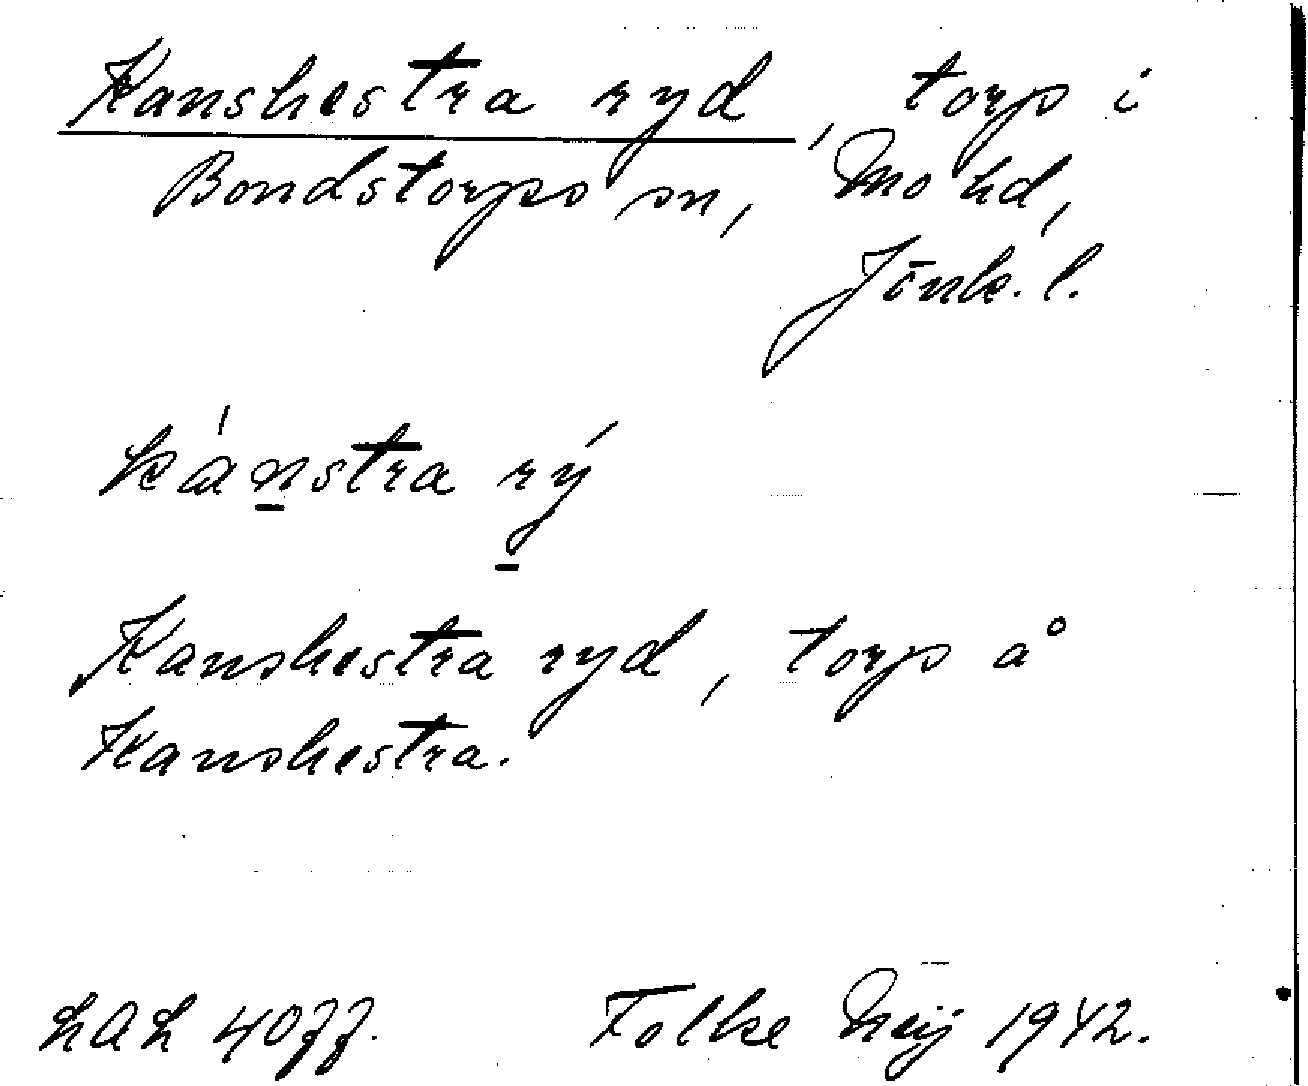 Kanshestra ryd, torp i
Bondstorps sn, Mo hd,
Jönk. l.
kánstra rý
Kanshestra ryd, torp å
Kanshestra.
4077. Folke Neij 1942.